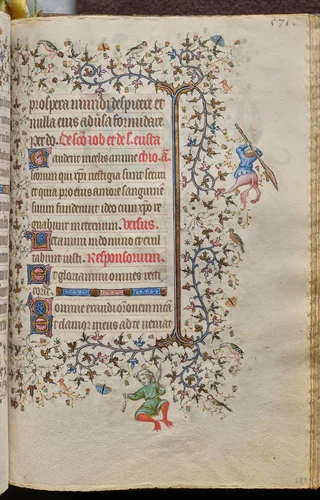 571.
prospera mundi despicere et
nulla eius adusa formidare
per do. De sco iob et de s. eusta
Gaudent in celis anime chio. a.
torum qui xpi vestigia sunt secuti
et quia pro eius amore sanguinem
suum fuderunt ideo cum xpo re
gnabunt in eternum. Versus.
Letamini in domino et exul
tabunt iusti. Responsorium.
Et gloriamini omnes recti
corde.
Domine exaudi orõnem meã
Et clamor meus ad te veniat